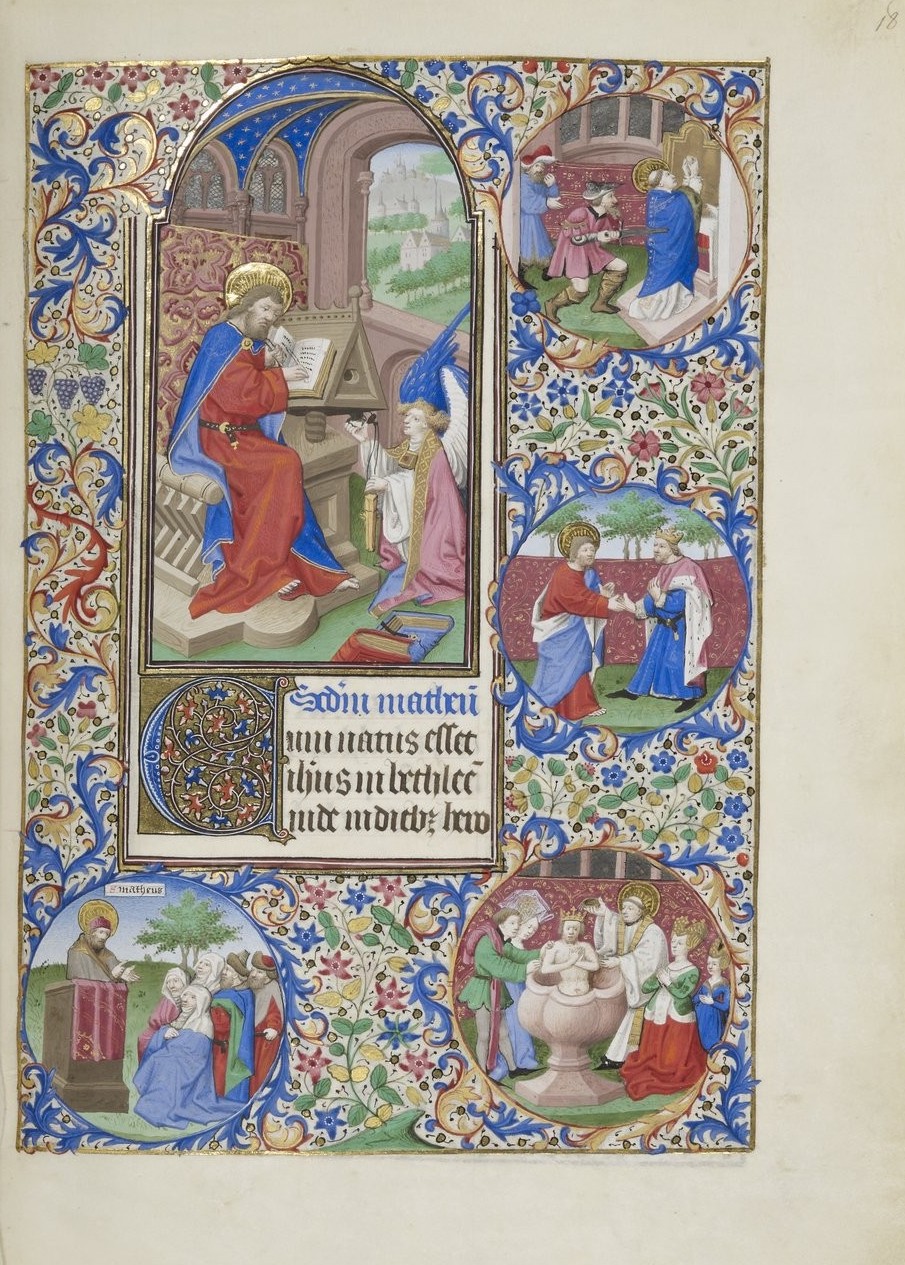 18
Scdm matheu
Cum natus esset
ihus in bethleē
iude in diebꝫ hero
s matheus